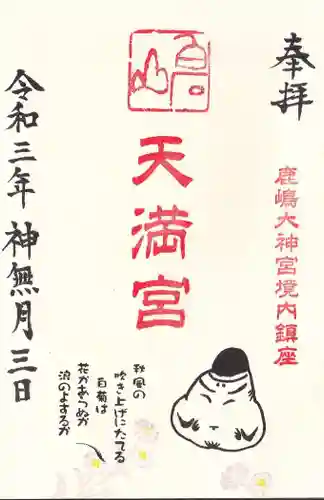 奉拝
鹿嶋大神宮境内鎮座
天満宮
秋風の
吹き上げにたてる
白菊は
花かあらぬか
浪のよするか
令和三年 神無月三日